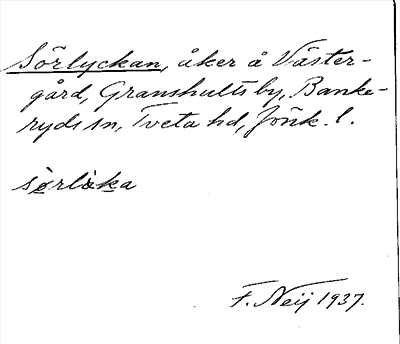 Sörlyckan, åker å Väster-
gård, Granshults by, Banke-
ryds sn, Tveta hd, Jönk. l.
sörlèka
F. Neij 1937.